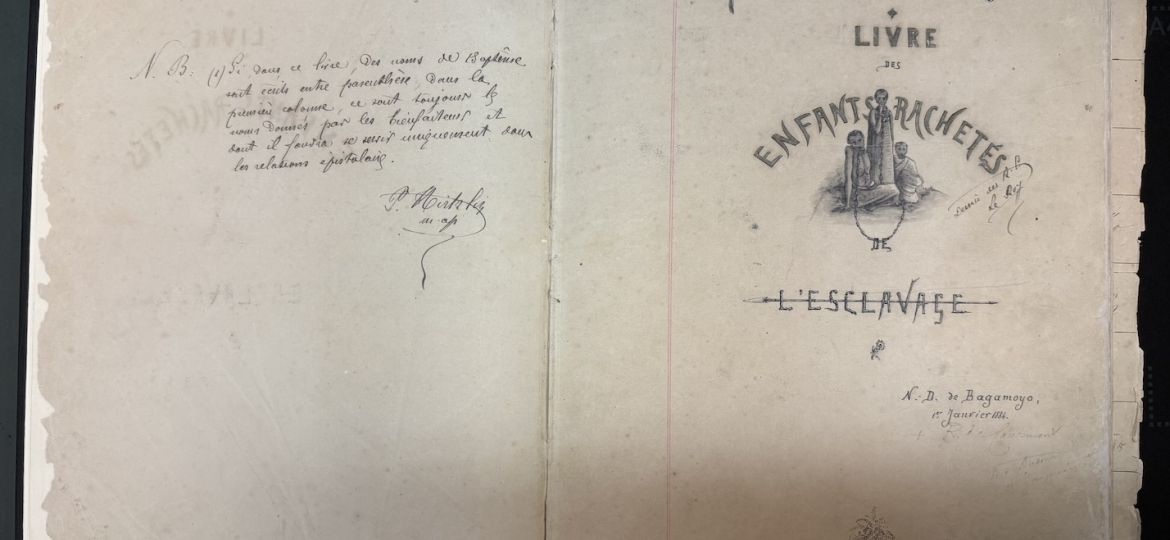 N. B: (1) Si, dans ce livre, des noms de Baptême
sont écrits entre parenthèse, dans la
première colonne, ce sont toujours les
noms donnés par les bienfaiteurs et
dont il faudra se servir uniquement dans
les relations épistolaires.
P. Hirtzlin
m. ap
LIVRE
DES
ENFANTS RACHETÉS
Dessin du R.P.
le Roy
DE
L'ESCLAVAGE
N.-D. de Bagamoyo,
1er Janvier 1884.